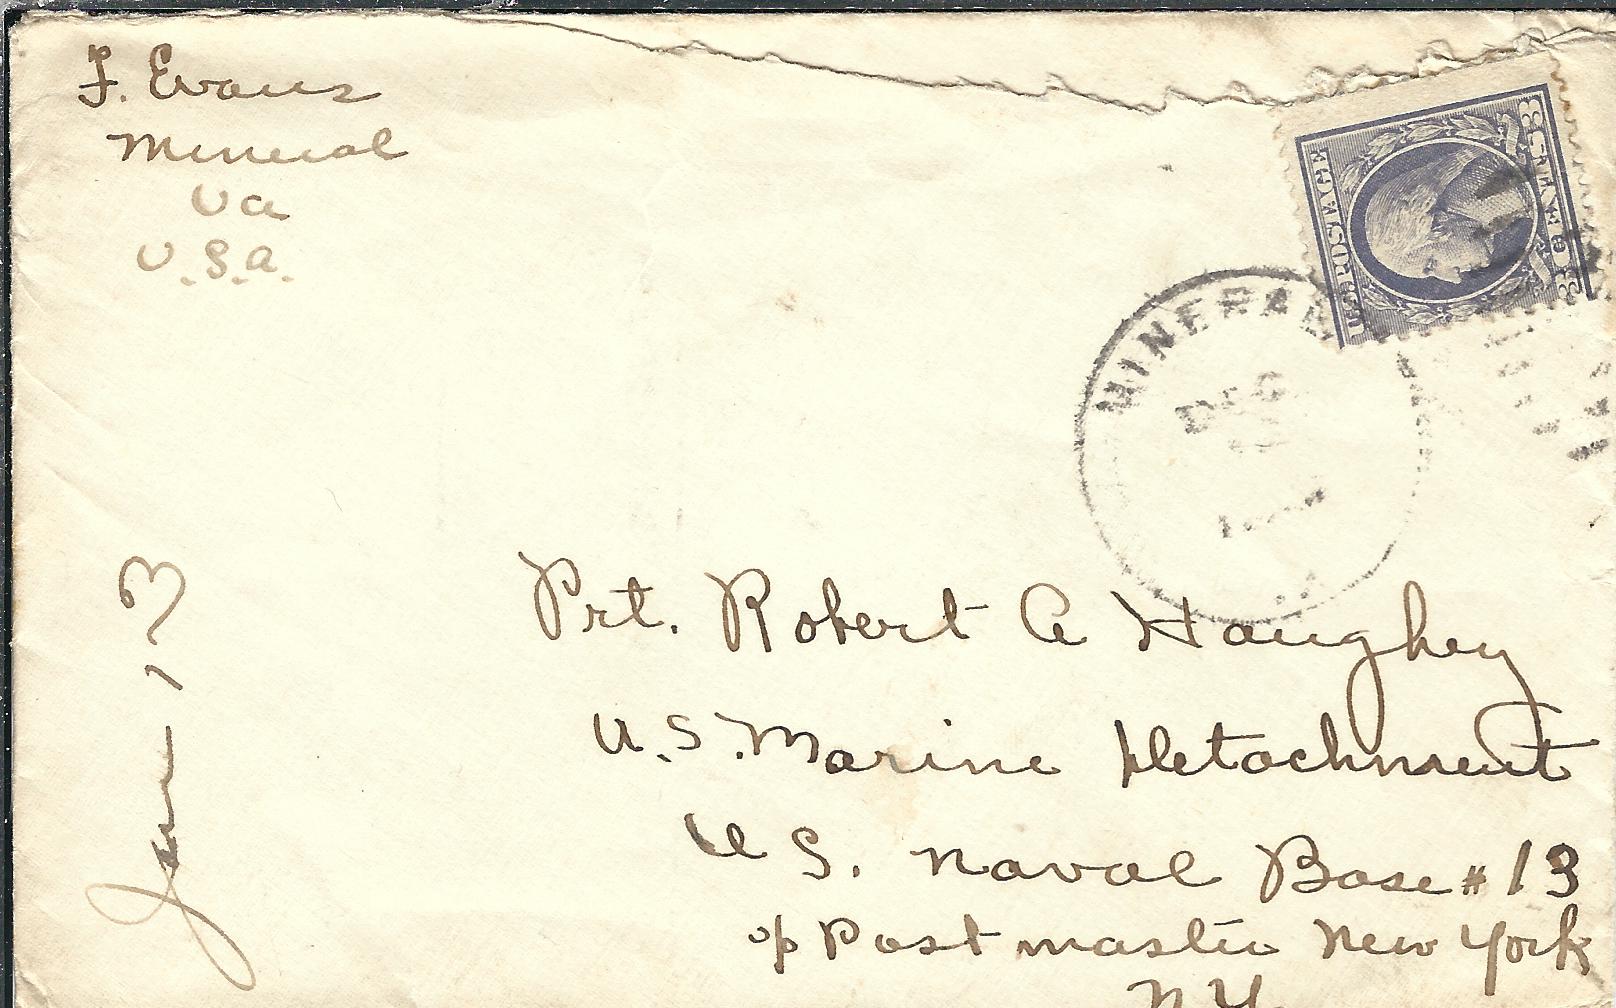 F. Evans
Mineral
Va
U.S.A.
U.S. POSTAGE
3 CENTS 3
MINERAL
DEC
Prt. Robert A Haughey
U.S. Marine Detachment
U S. Naval Base # 13
c/o Postmaster New York
N.Y.
Jan - 13